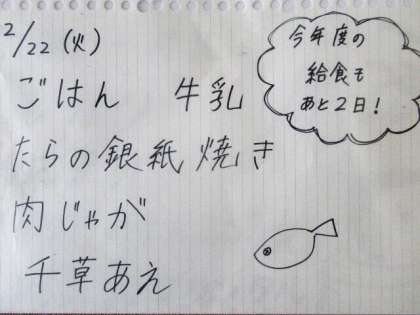 2/22 (火)
ごはん 牛乳
たらの銀紙焼き
肉じゃが
千草あえ
今年度の
給食も
あと2日!